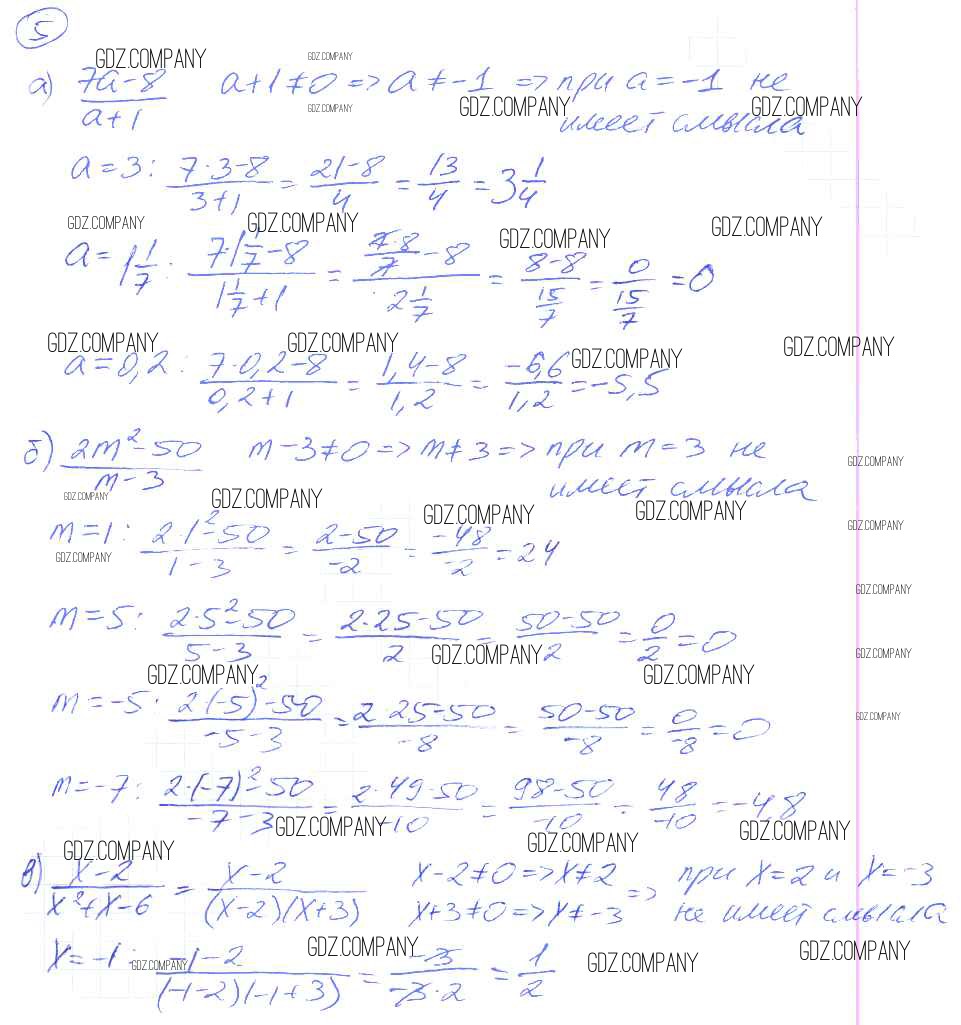 5
GDZ.COMPANY GDZ.COMPANY
а) (7a-8)/(a+1) a+1≠0 => a≠-1 => при a=-1 не
GDZ.COMPANY GDZ.COMPANY GDZ.COMPANY
имеет смысла
a=3: (7·3-8)/(3+1) = (21-8)/4 = 13/4 = 3 1/4
GDZ.COMPANY GDZ.COMPANY GDZ.COMPANY GDZ.COMPANY
a=1 1/7: (7·1 1/7-8)/(1 1/7+1) = ((7·8)/7-8)/(2 1/7) = (8-8)/(15/7) = 0/(15/7) = 0
GDZ.COMPANY GDZ.COMPANY GDZ.COMPANY GDZ.COMPANY
a=0,2: (7·0,2-8)/(0,2+1) = (1,4-8)/1,2 = -6,6/1,2 = -5,5
б) (2m²-50)/(m-3) m-3≠0 => m≠3 => при m=3 не
GDZ.COMPANY
имеет смысла
GDZ.COMPANY GDZ.COMPANY GDZ.COMPANY GDZ.COMPANY
m=1: (2·1²-50)/(1-3) = (2-50)/-2 = -48/-2 = 24
GDZ.COMPANY GDZ.COMPANY
GDZ.COMPANY
m=5: (2·5²-50)/(5-3) = (2·25-50)/2 = (50-50)/2 = 0/2 = 0
GDZ.COMPANY GDZ.COMPANY
GDZ.COMPANY GDZ.COMPANY
m=-5: (2(-5)²-50)/(-5-3) = (2·25-50)/-8 = (50-50)/-8 = 0/-8 = 0
GDZ.COMPANY
m=-7: (2·(-7)²-50)/(-7-3) = (2·49-50)/-10 = (98-50)/-10 = 48/-10 = -4,8
GDZ.COMPANY GDZ.COMPANY GDZ.COMPANY
GDZ.COMPANY
в) (x-2)/(x²+x-6) = (x-2)/((x-2)(x+3)) x-2≠0 => x≠2 => при x=2 и x=-3
x+3≠0 => x≠-3 не имеет смысла
GDZ.COMPANY GDZ.COMPANY GDZ.COMPANY GDZ.COMPANY
x=-1: (-1-2)/((-1-2)(-1+3)) = -3/(-3·2) = 1/2